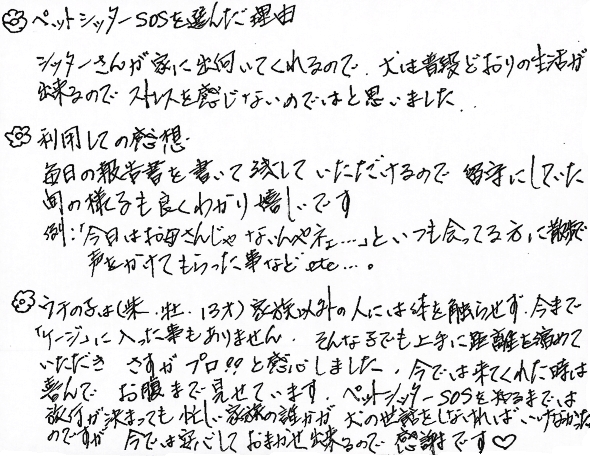 ✿ペットシッターSOSを選んだ理由
シッターさんが家に出向いてくれるので、犬は普段どおりの生活が
出来るのでストレスを感じないのではと思いました。
✿利用しての感想
毎日の報告書を書いて残していただけるので留守にしていた
間の様子も良くわかり嬉しいです
例：「今日はお母さんじゃないんやネェ…」といつも会ってる方に散歩で
声をかけてもらった事など etc…。
✿ウチの子は(柴．牡．13才)家族以外の人には体を触らせず、今まで
「ケージ」に入った事もありません。そんな子でも上手に距離を縮めて
いただき さすがプロ!!と感心しました。今では来てくれた時は
喜んで お腹まで見せています。ペットシッターSOSを知るまでは
旅行が決まっても忙しい家族の誰かが 犬の世話をしなければいけなかった
のですが 今では安心しておまかせ出来るので感謝です♡